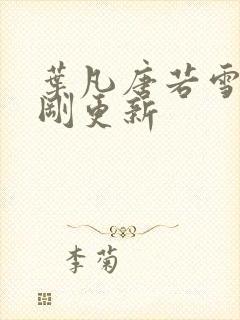 葉凡唐若雪
剛更新
李菊